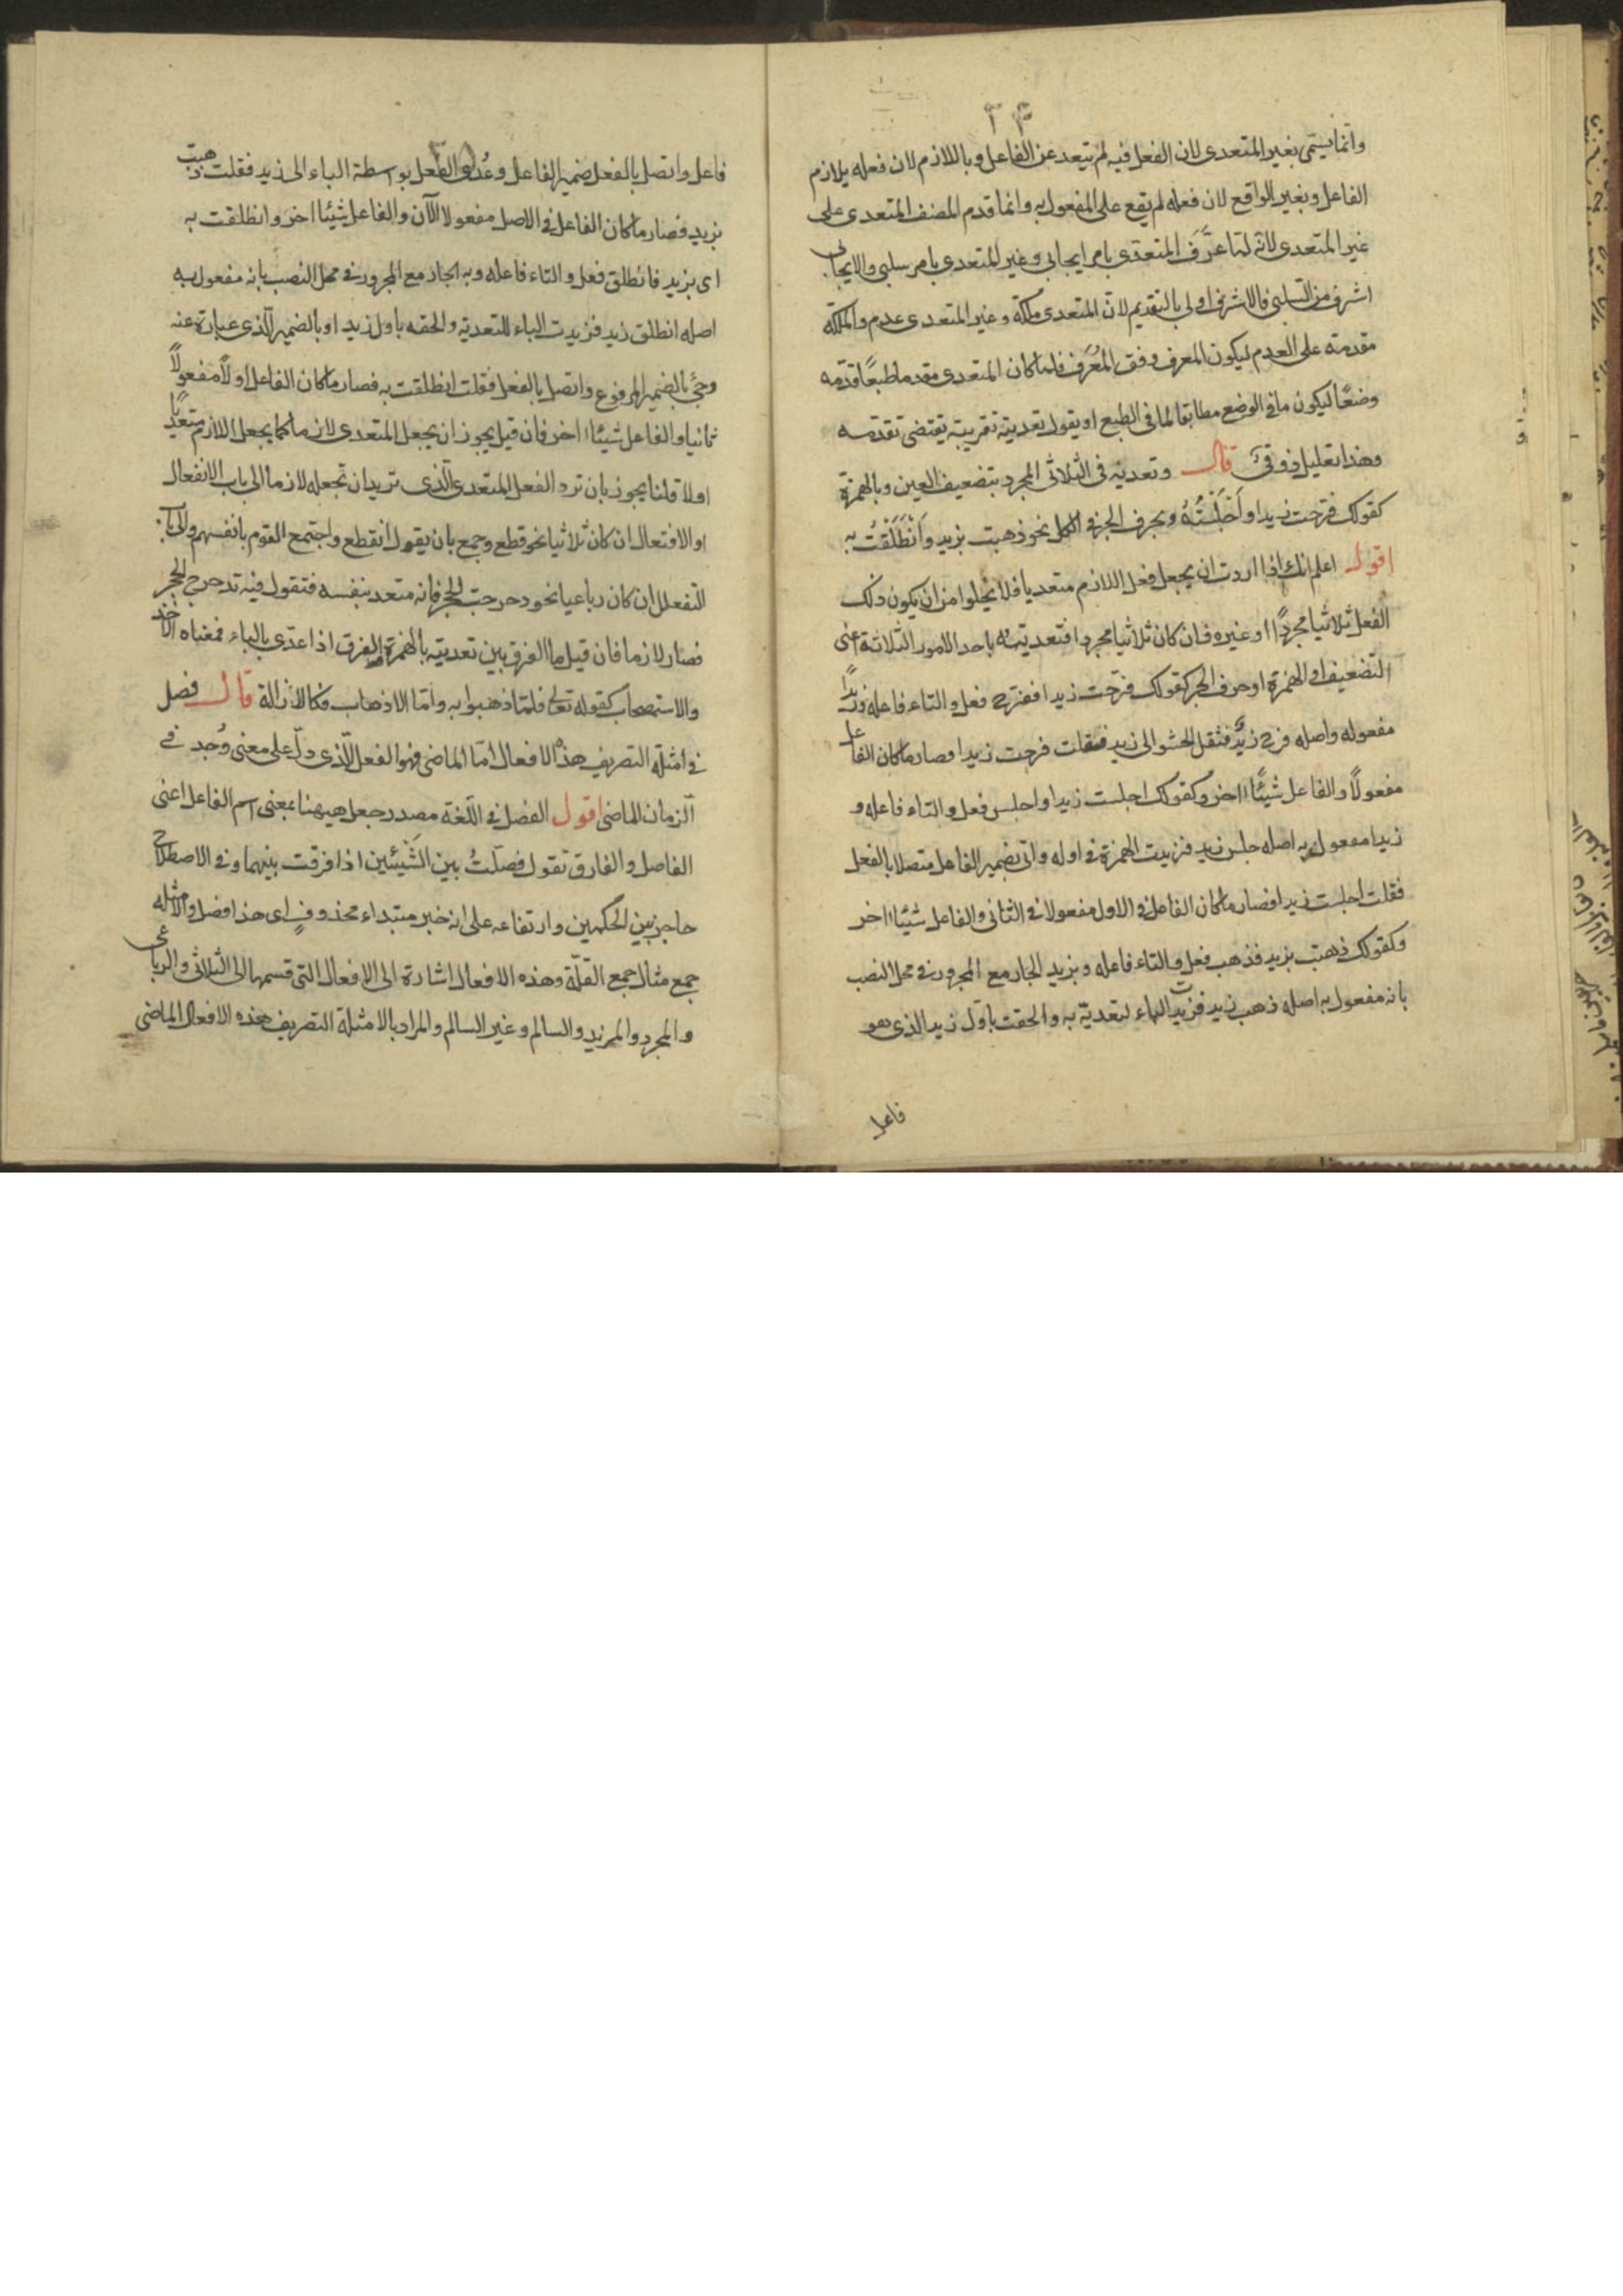 ٣٤
وانما يسمى بغير المتعدى لان الفعل فيه لم يتعد عن الفاعل وباللازم لان فعله يلازم
الفاعل وبغير الواقع لان فعله لم يقع على المفعول به وانما قدم المصنف المتعدى على
غير المتعدى لانه لما عرَّفَ المتعدّى بامر ايجابى وغير المتعدى بامر سلبى والايجابى
اشرف من السلبى فالاشرف اولى بالتقديم لانّ المتعدى ملكة وغير المتعدى عدم والملكة
مقدمة على العدم ليكون المعرف وفق المُعَرف فلما كان المتعدى مقدما طبعًا قدّمه
وضعًا ليكون ما فى الوضع مطابقا لما فى الطبع او يقول تعديته تقريبته يقتضى تقدمه
وهذا تعليل ذوقىّ قال وتعديته فى الثلاثى المجرد بتضعيف العين وبالهمزة
كقولك فرّحت زيدا و اَجْلَسْتُهُ وبحرف الجر فى الكل نحو ذهبت بزيد وَانْطَلَقْتُ به
اقول اعلم انك اذا اردت ان يجعل فعل اللازم متعديا فلا يخلوا من ان يكون ذلك
الفعل ثلاثيا مجردًا او غيره فان كان ثلاثيا مجردا فتعديته باحد الامور الثلاثة اعنى
التّضعيف او الهمزة او حرف الجر كقولك فرّحت زيدا ففرّح فعل والتاء فاعله وزيدًا
مفعوله واصله فرح زيدٌ فثقل الحشو الى زيد فقلت فرحت زيدا فصار ما كان الفاعل
مفعولاً والفاعل شيئًا اخر وكقولك اجلست زيدا واجلس فعل والتاء فاعله و
زيدا مفعول به اصله جلس زيد فزيدت الهمزة فى اوله واتى بضمير الفاعل متصلا بالفعل
فقلت اجلست زيدا فصار ما كان الفاعل فى الاول مفعولا فى الثانى والفاعل شيئا اخر
وكقولك ذهبت بزيد فذهب فعل والتاء فاعله وبزيد الجار مع المجرور فى محل النصب
بانه مفعول به اصله ذهب زيد فزيدت الباء لتعديّة به والحقت باوّل زيد الذى هو
فاعل
فاعل واتصل بالفعل ضمير الفاعل وعُدّى الفعل بواسطة الباء الى زيد فقلت ذهبت
بزيد فصار ما كان الفاعل فى الاصل مفعولا الآن والفاعل شيئا اخر وانطلقت به
اى بزيد فانطلق فعل والتاء فاعله وبه الجار مع المجرور فى محل النصب بانه مفعول به
اصله انطلق زيد فزيدت الباء للتعدية والحقه باول زيد او بالضمير الّذى عبارة عنه
وجئ بالضمير المرفوع واتصل بالفعل فقلت انطلقت به فصار ما كان الفاعل اولاً مفعولاً
ثانيا والفاعل شيئا اخر فان قيل يجوز ان يجعل المتعدى لازما كما يجعل اللازم متعدّيا
او لا قلنا يجوز بان ترد الفعل المتعدى الّذى تريد ان تجعله لازما الى باب الانفعال
او الافتعال ان كان ثلاثيا نحو قطع وجمع بان يقول انقطع واجتمع القوم بانفسهم والى باب
التفعلل ان كان رباعيا نحو دحرجت الحجر فانه متعد بنفسه فتقول فيه تدحرج الحجر
فصار لازما فان قيل ما الفرق بين تعديته بالهمزة الفرق اذا عدّى بالباء فمعناه الاخذ
والاستصحاب كقوله تعالى فلمّا ذهبوا به وامّا الاذهاب فكالازالة قال فصل
فى امثلة التصريف هذه الافعال امّا الماضى فهو الفعل الّذى دلّ على معنى وُجد فى
الزمان الماضى اقول الفصل فى اللّغة مصدر جعل ههنا بمعنى اسم الفاعل اعنى
الفاصل والفارق تقول فصلتُ بين الشّيئين اذا فرقت بينهما وفى الاصطلاح
حاجز بين الحكمين وارتفاعه على انه خبر مبتداء محذوفٍ اى هذا فصل والامثلة
جمع مثال جمع القلّة وهذه الافعال اشارة الى الافعال التى قسمها الى الثلاثى والرباعى
والمجرد والمزيد والسالم وغير السالم والمراد بالامثلة التصريف هذه الافعال الماضى